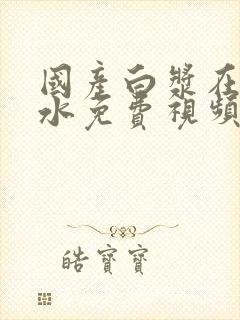 國產白漿在
水免費視頻
皓寶寶